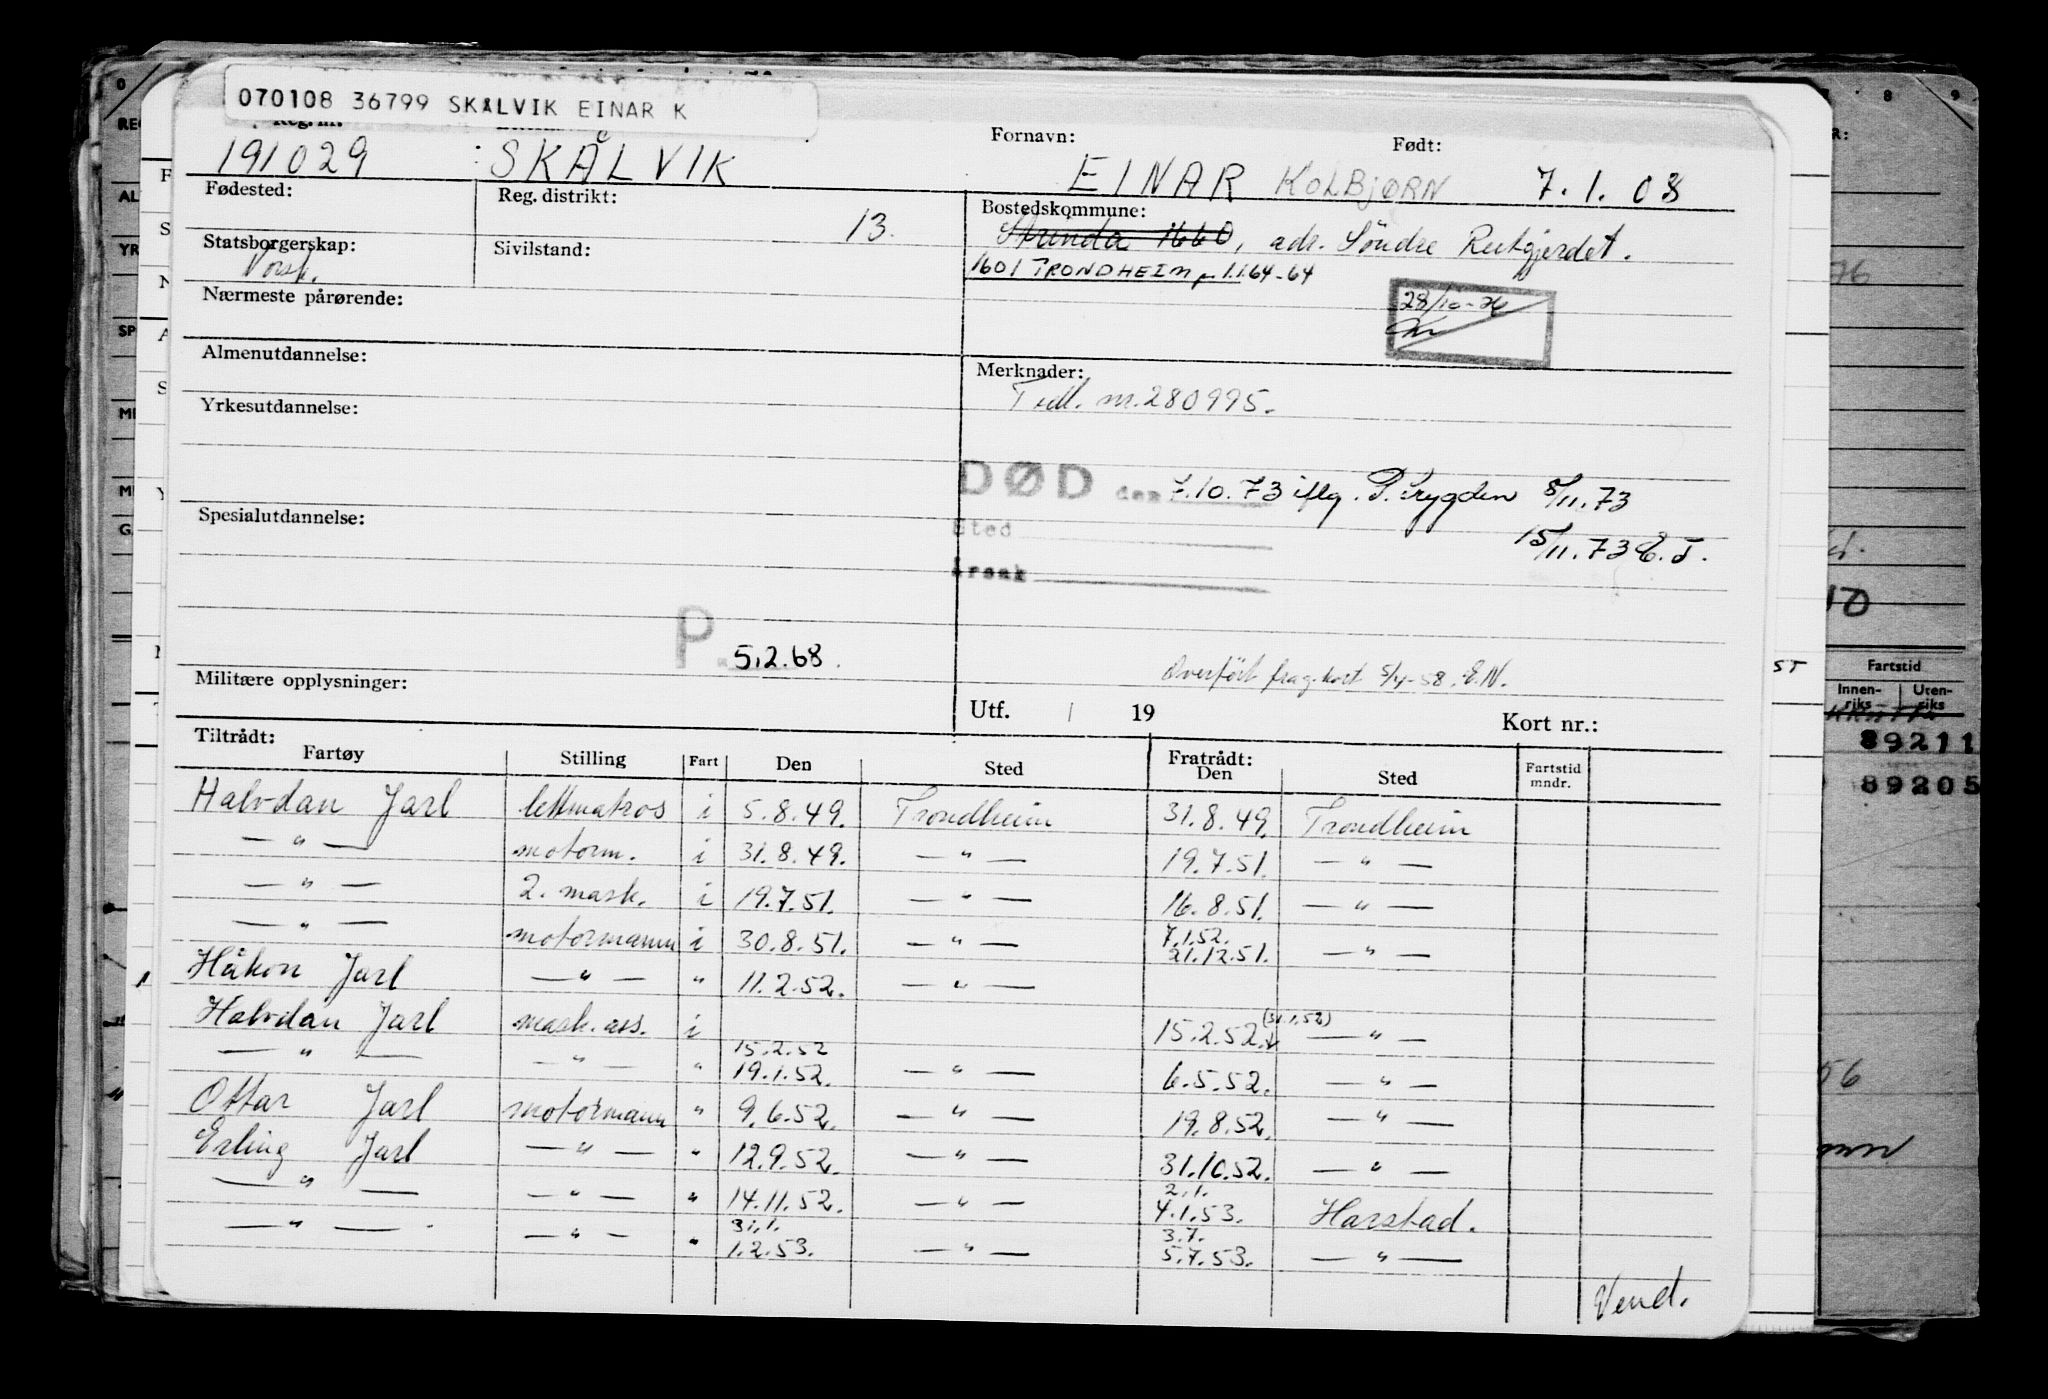 070108 36799 SKÅLVIK EINAR K
Fornavn: Født:
191029 SKÅLVIK EINAR KOLBJØRN 7.1.08
Fødested: Reg. distrikt: 13. Bostedskommune:
Strinda 1660, adr. Söndre
Statsborgerskap: Sivilstand:
Norsk. 1601 TRONDHEIM pr 1.1.64-64
Nærmeste pårørende: 28/10-76
Almenutdannelse: Merknader:
Tidl. nr. 280995.
Yrkesutdannelse:
DØD den 7.10.73 iflg. P. trygden 8/11.73
Spesialutdannelse: Sted 15/11.73 E.T.
Årsak
P. 5.2.68.
Overført fra g.kort 5/4-58. E.N.
Militære opplysninger:
Utf. / 19 Kort nr.:
Tiltrådt: Fratrådt:
Fartøy Stilling Fart Den Sted Den Sted Fartstid mndr.
Halvdan Jarl lettmatros i 5.8.49. Trondheim 31.8.49. Trondheim
— " — motorm. i 31.8.49. — " — 19.7.51. — " —
— " — 2. mask. i 19.7.51. — " — 16.8.51. — " —
7.1.52.
— " — motormann i 30.8.51. — " — 21.12.51. — " —
Håkon Jarl — " — " 11.2.52. — " —
(31.1.52)
Halvdan Jarl mask. ass. i 15.2.52. — " —
15.2.52
— " — — " — " 19.1.52. — " — 6.5.52. — " —
Ottar Jarl motormann " 9.6.52. — " — 19.8.52. — " —
Erling Jarl — " — " 12.9.52. — " — 31.10.52. — " —
2.1.
— " — — " — " 14.11.52. — " — 4.1.53. Harstad.
31.1. 3.7.
— " — — " — " 1.2.53. — " — 5.7.53. — " —
Vend.
8 9
76
Fartstid
Innenriks Utenriks
89211
89205
56